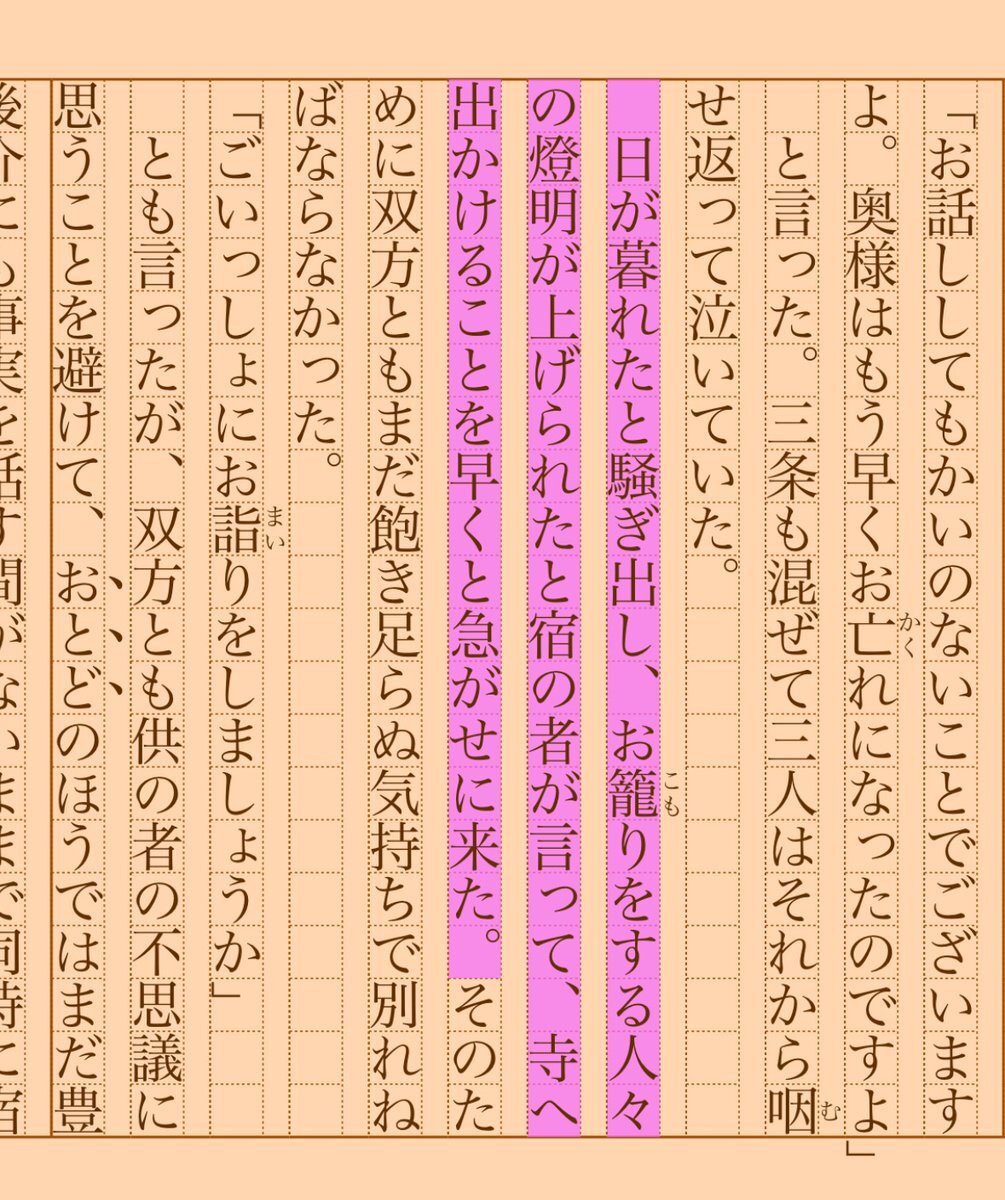 「お話ししてもかいのないことでございます
よ。奥様はもう早くお亡れになったのですよ」
と言った。三条も混ぜて三人はそれから咽
せ返って泣いていた。
日が暮れたと騒ぎ出し、お籠りをする人々
の燈明が上げられたと宿の者が言って、寺へ
出かけることを早くと急がせに来た。そのた
めに双方ともまだ飽き足らぬ気持ちで別れね
ばならなかった。
「ごいっしょにお詣りをしましょうか」
とも言ったが、双方とも供の者の不思議に
思うことを避けて、おとどのほうではまだ豊